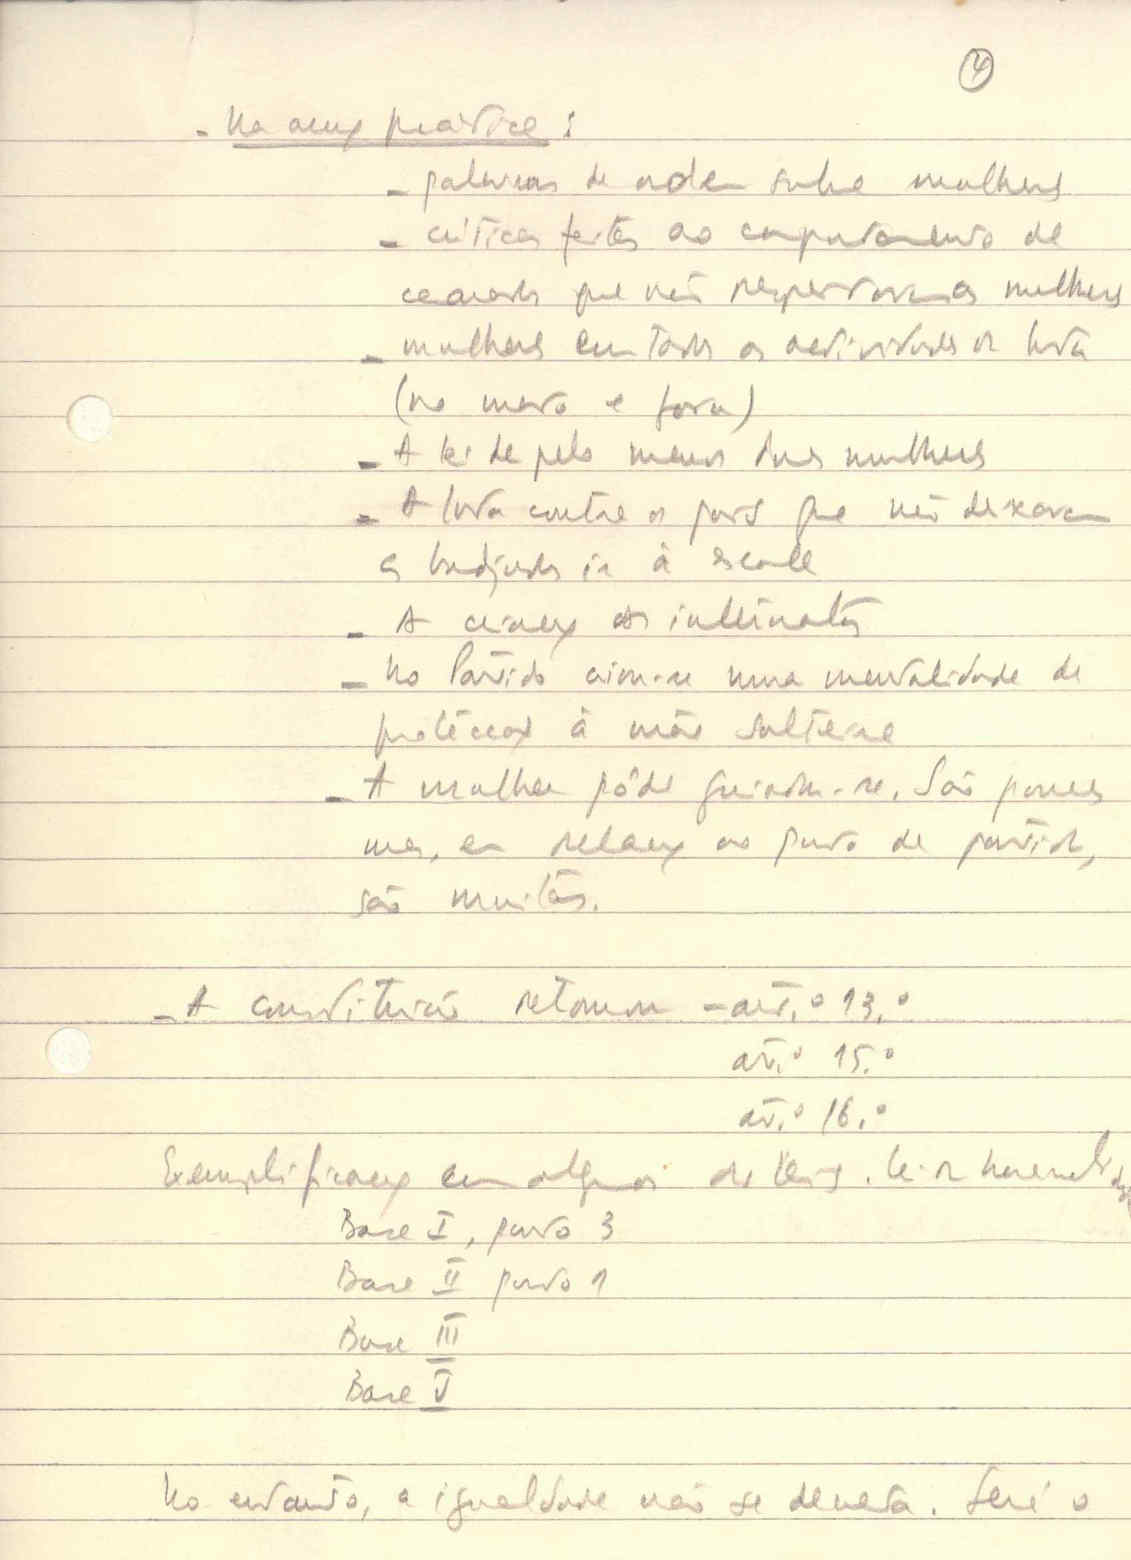 4
- Na acção prática:
- palavras de ordem sobre mulheres
- críticas feitas ao comportamento de
camaradas que não respeitavam as mulheres
- mulheres em todas as actividades da luta
(no mato e fora)
- A lei de pelo menos duas mulheres
- A luta contra os pais que não deixavam
as bajudas ir à escola
- A criação dos internatos
- No Partido criou-se uma mentalidade de
protecção à mãe solteira
- A mulher pôde guindar-se. São poucas
mas, em relação ao ponto de partida,
são muitas.
- A constituição retomou - art.º 13.º
art.º 15.º
art.º 16.º
Exemplificação em algumas das leis. Lei da
Base I, ponto 3
Base II ponto 1
Base III
Base V
No entanto, a igualdade não se decreta. Será o